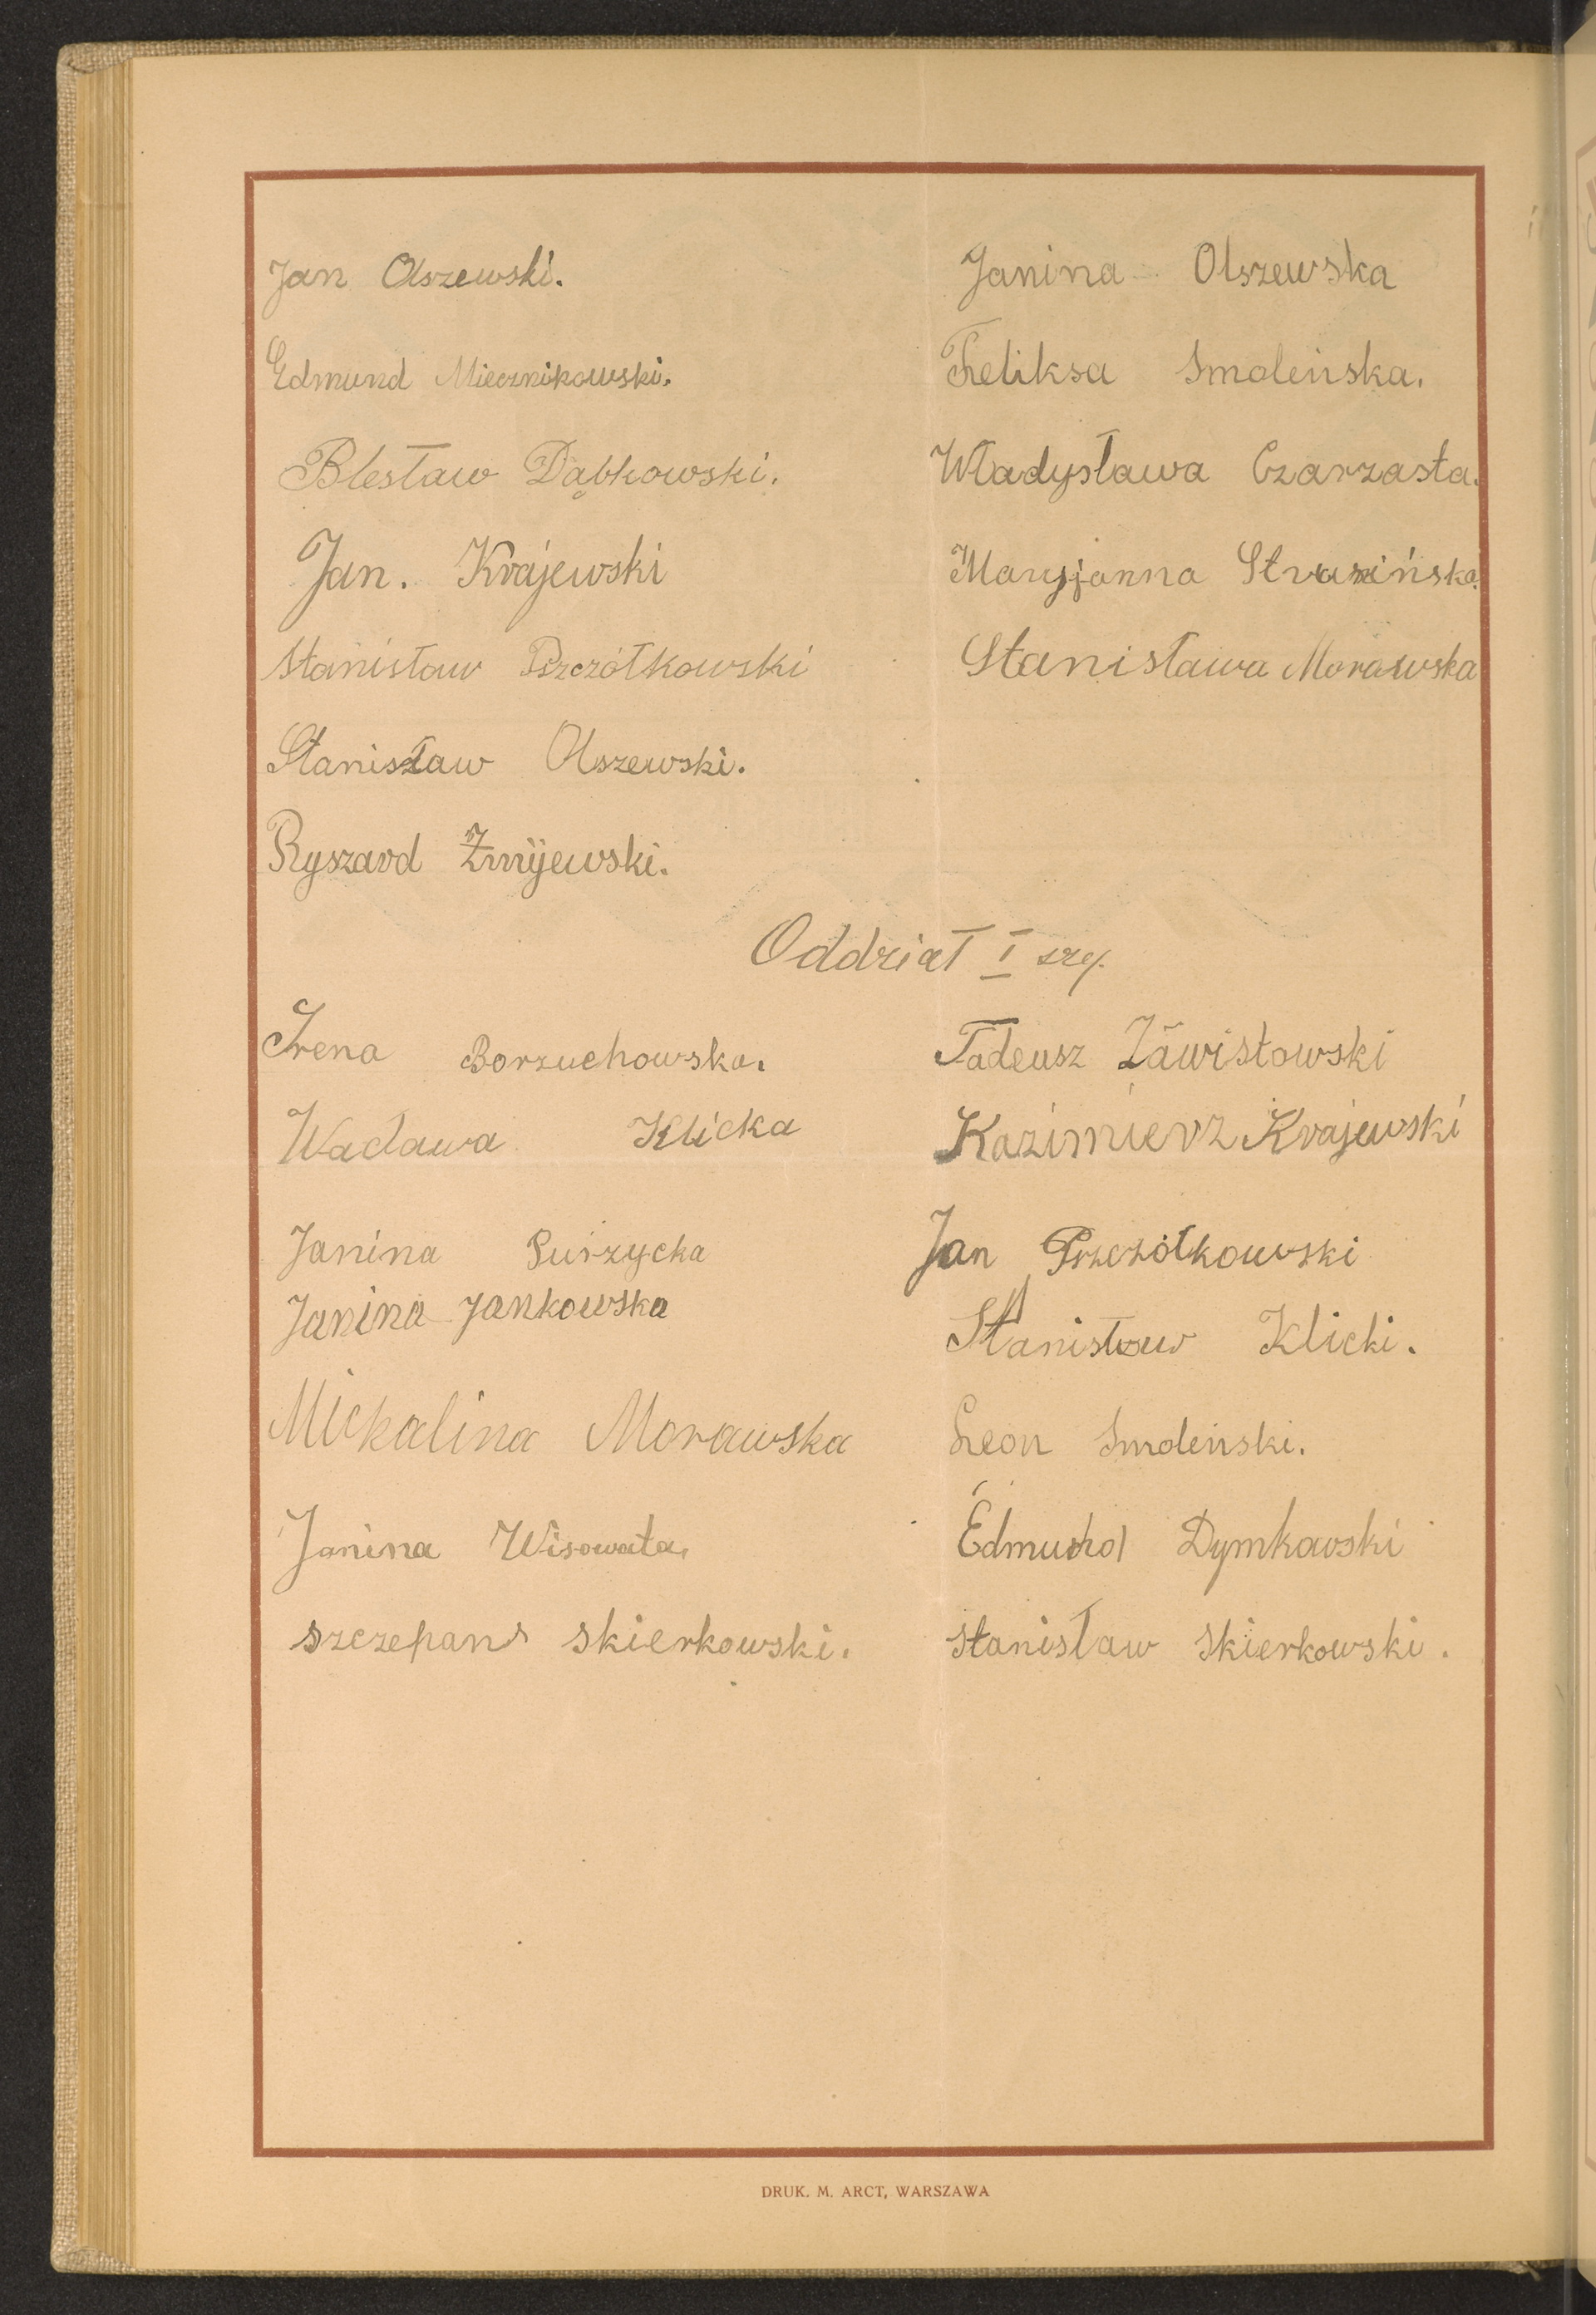 Jan Olszewski.
Edmund Miecznikowski.
Blesław Dąbkowski.
Jan. Krajewski
Stanisław Pszczółkowski
Stanisław Olszewski.
Ryszard Żmijewski.
Janina Olszewska
Feliksa Smoleńska.
Władysława Czarzasta.
Maryjanna
Stanisława Morawska
Oddział I szy.
Irena Borzuchowska.
Wacława Klicka
Janina
Janina Jankowska
Michalina Morawska
Janina Wisowata.
szczepans skierkowski.
Tadeusz Zawistowski
Kazimierz Krajewski
Jan Pszczółkowski
Stanisław Klicki.
Leon Smoleński.
Edmund Dymkowski
Stanisław Skierkowski.
DRUK. M. ARCT, WARSZAWA